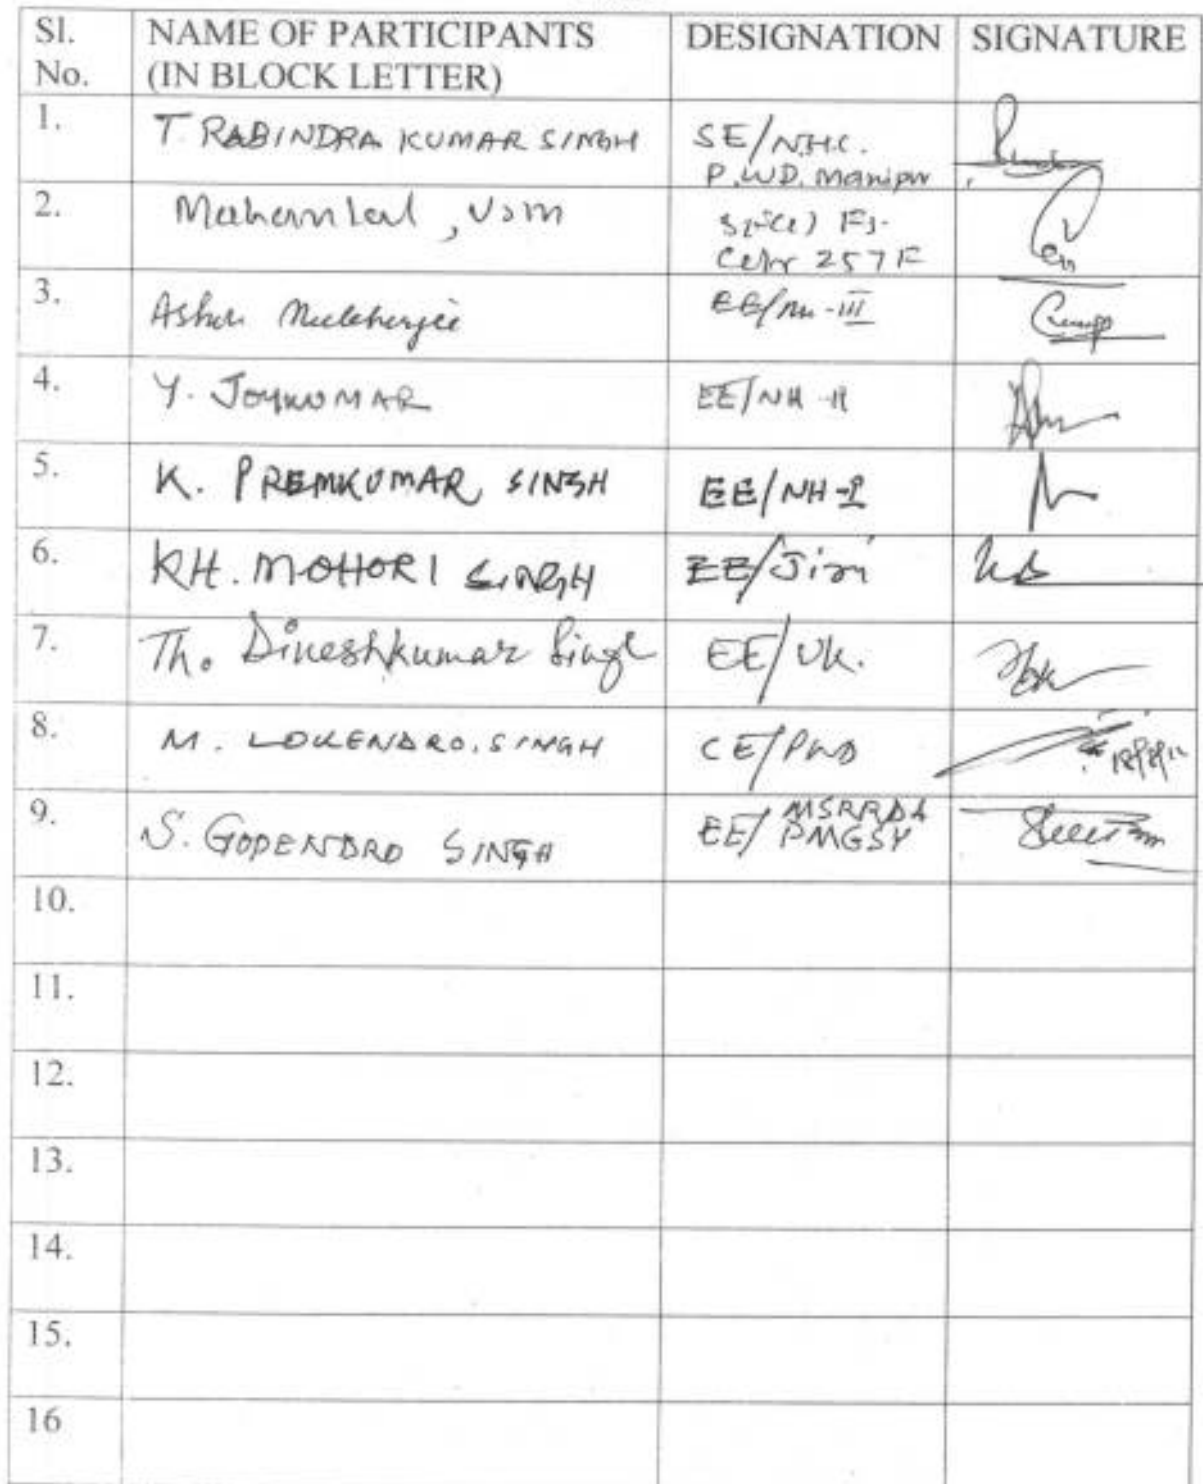 Sl. No. NAME OF PARTICIPANTS (IN BLOCK LETTER) DESIGNATION SIGNATURE
1. T. RABINDRA KUMAR SINGH SE/N.H.C.
P.W.D. Manipur
2.
3. Mukherjee EE/NH-III
4. Y. JOYKUMAR EE/NH-II
5. K. PREMKUMAR SINGH EE/NH-I
6. KH. MOHORI SINGH EE/Jiri
7. Th. Dineshkumar Singh EE/Ukl.
8. M. LOKENDRO SINGH CE/PWD
9. S. GOPENDRO SINGH EE/ MSRRDA
PMGSY
10.
11.
12.
13.
14.
15.
16